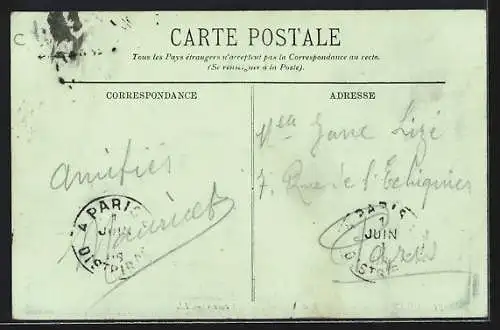 CARTE POSTALE
Tous les Pays étrangers n'acceptent pas la Correspondance au recto.
(Se renseigner à la Poste).
CORRESPONDANCE
ADRESSE
Jane Lizé
7, Rue de l'Echiquier
Paris
Amitiés
PARIS
JUIN
PARIS
1
JUIN